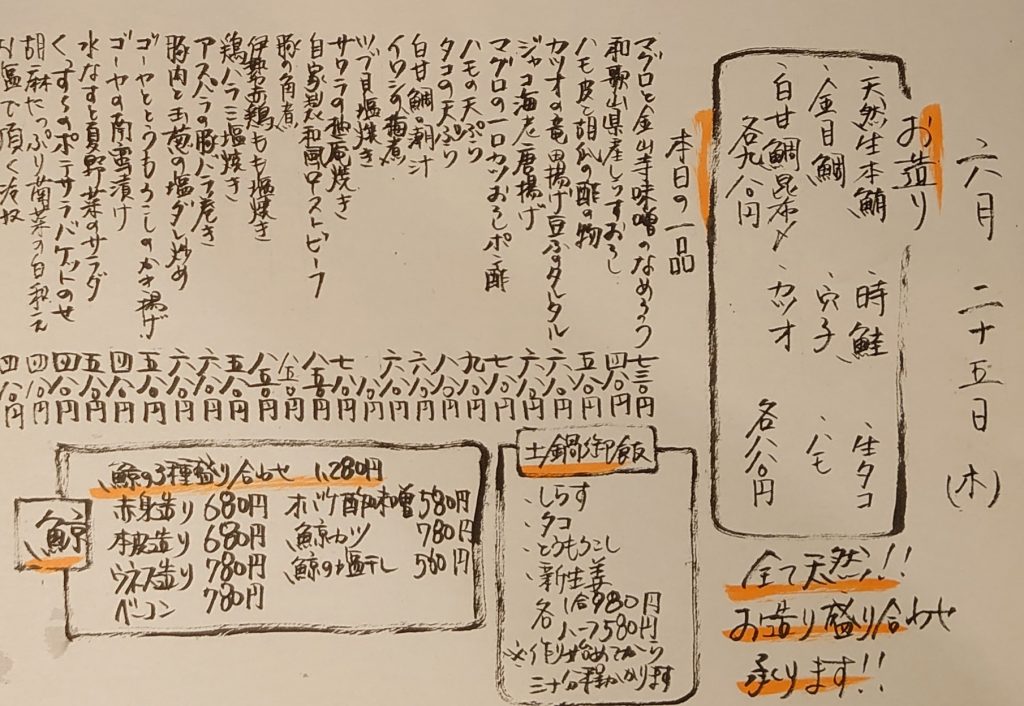 六月 二十五日 (木)
お造り
、天然生本鮪 、時鮭 、生タコ
、金目鯛 、穴子 、ハモ
、白甘鯛昆布〆 、カツオ
各九八〇円 各八八〇円
全て天然!!
お造り盛り合わせ
承ります!!
本日の一品
マグロと金山寺味噌のなめろう 七三〇円
和歌山県産しらすおろし 四八〇円
ハモ皮と胡瓜の酢の物 五八〇円
カツオの竜田揚げ豆腐タルタル 六八〇円
ジャコ海老唐揚げ 六八〇円
マグロの一口カツおろしポン酢 七八〇円
ハモの天ぷら 九八〇円
タコの天ぷら 八八〇円
白甘鯛の潮汁 六八〇円
イワシの梅煮 六八〇円
ツブ貝塩焼き
サワラの柚庵焼き 七八〇円
自家製和風ローストビーフ 八五〇円
豚の角煮 八五〇円
伊勢赤鶏もも塩焼き 八五〇円
鶏ハラミ塩焼き 五八〇円
アスパラの豚バラ巻き 六八〇円
豚肉と玉葱の塩ダレ炒め 六八〇円
ゴーヤととうもろこしのかき揚げ 五八〇円
ゴーヤの南蛮漬け 四八〇円
水なすと夏野菜のサラダ 五八〇円
ポテサラバケットのせ 四八〇円
胡麻たっぷり菊菜の白和え 四八〇円
お塩で頂く冷奴 四八〇円
土鍋御飯
、しらす
、タコ
、とうもろこし
、新生姜
各 1合980円
ハーフ580円
※作り始めてから
三十分程かかります
鯨
鯨の3種盛り合わせ 1,280円
赤身造り 680円 オバケ酢味噌 580円
本皮造り 680円 鯨カツ 780円
ウネス造り 780円 鯨の塩干し 560円
ベーコン 780円